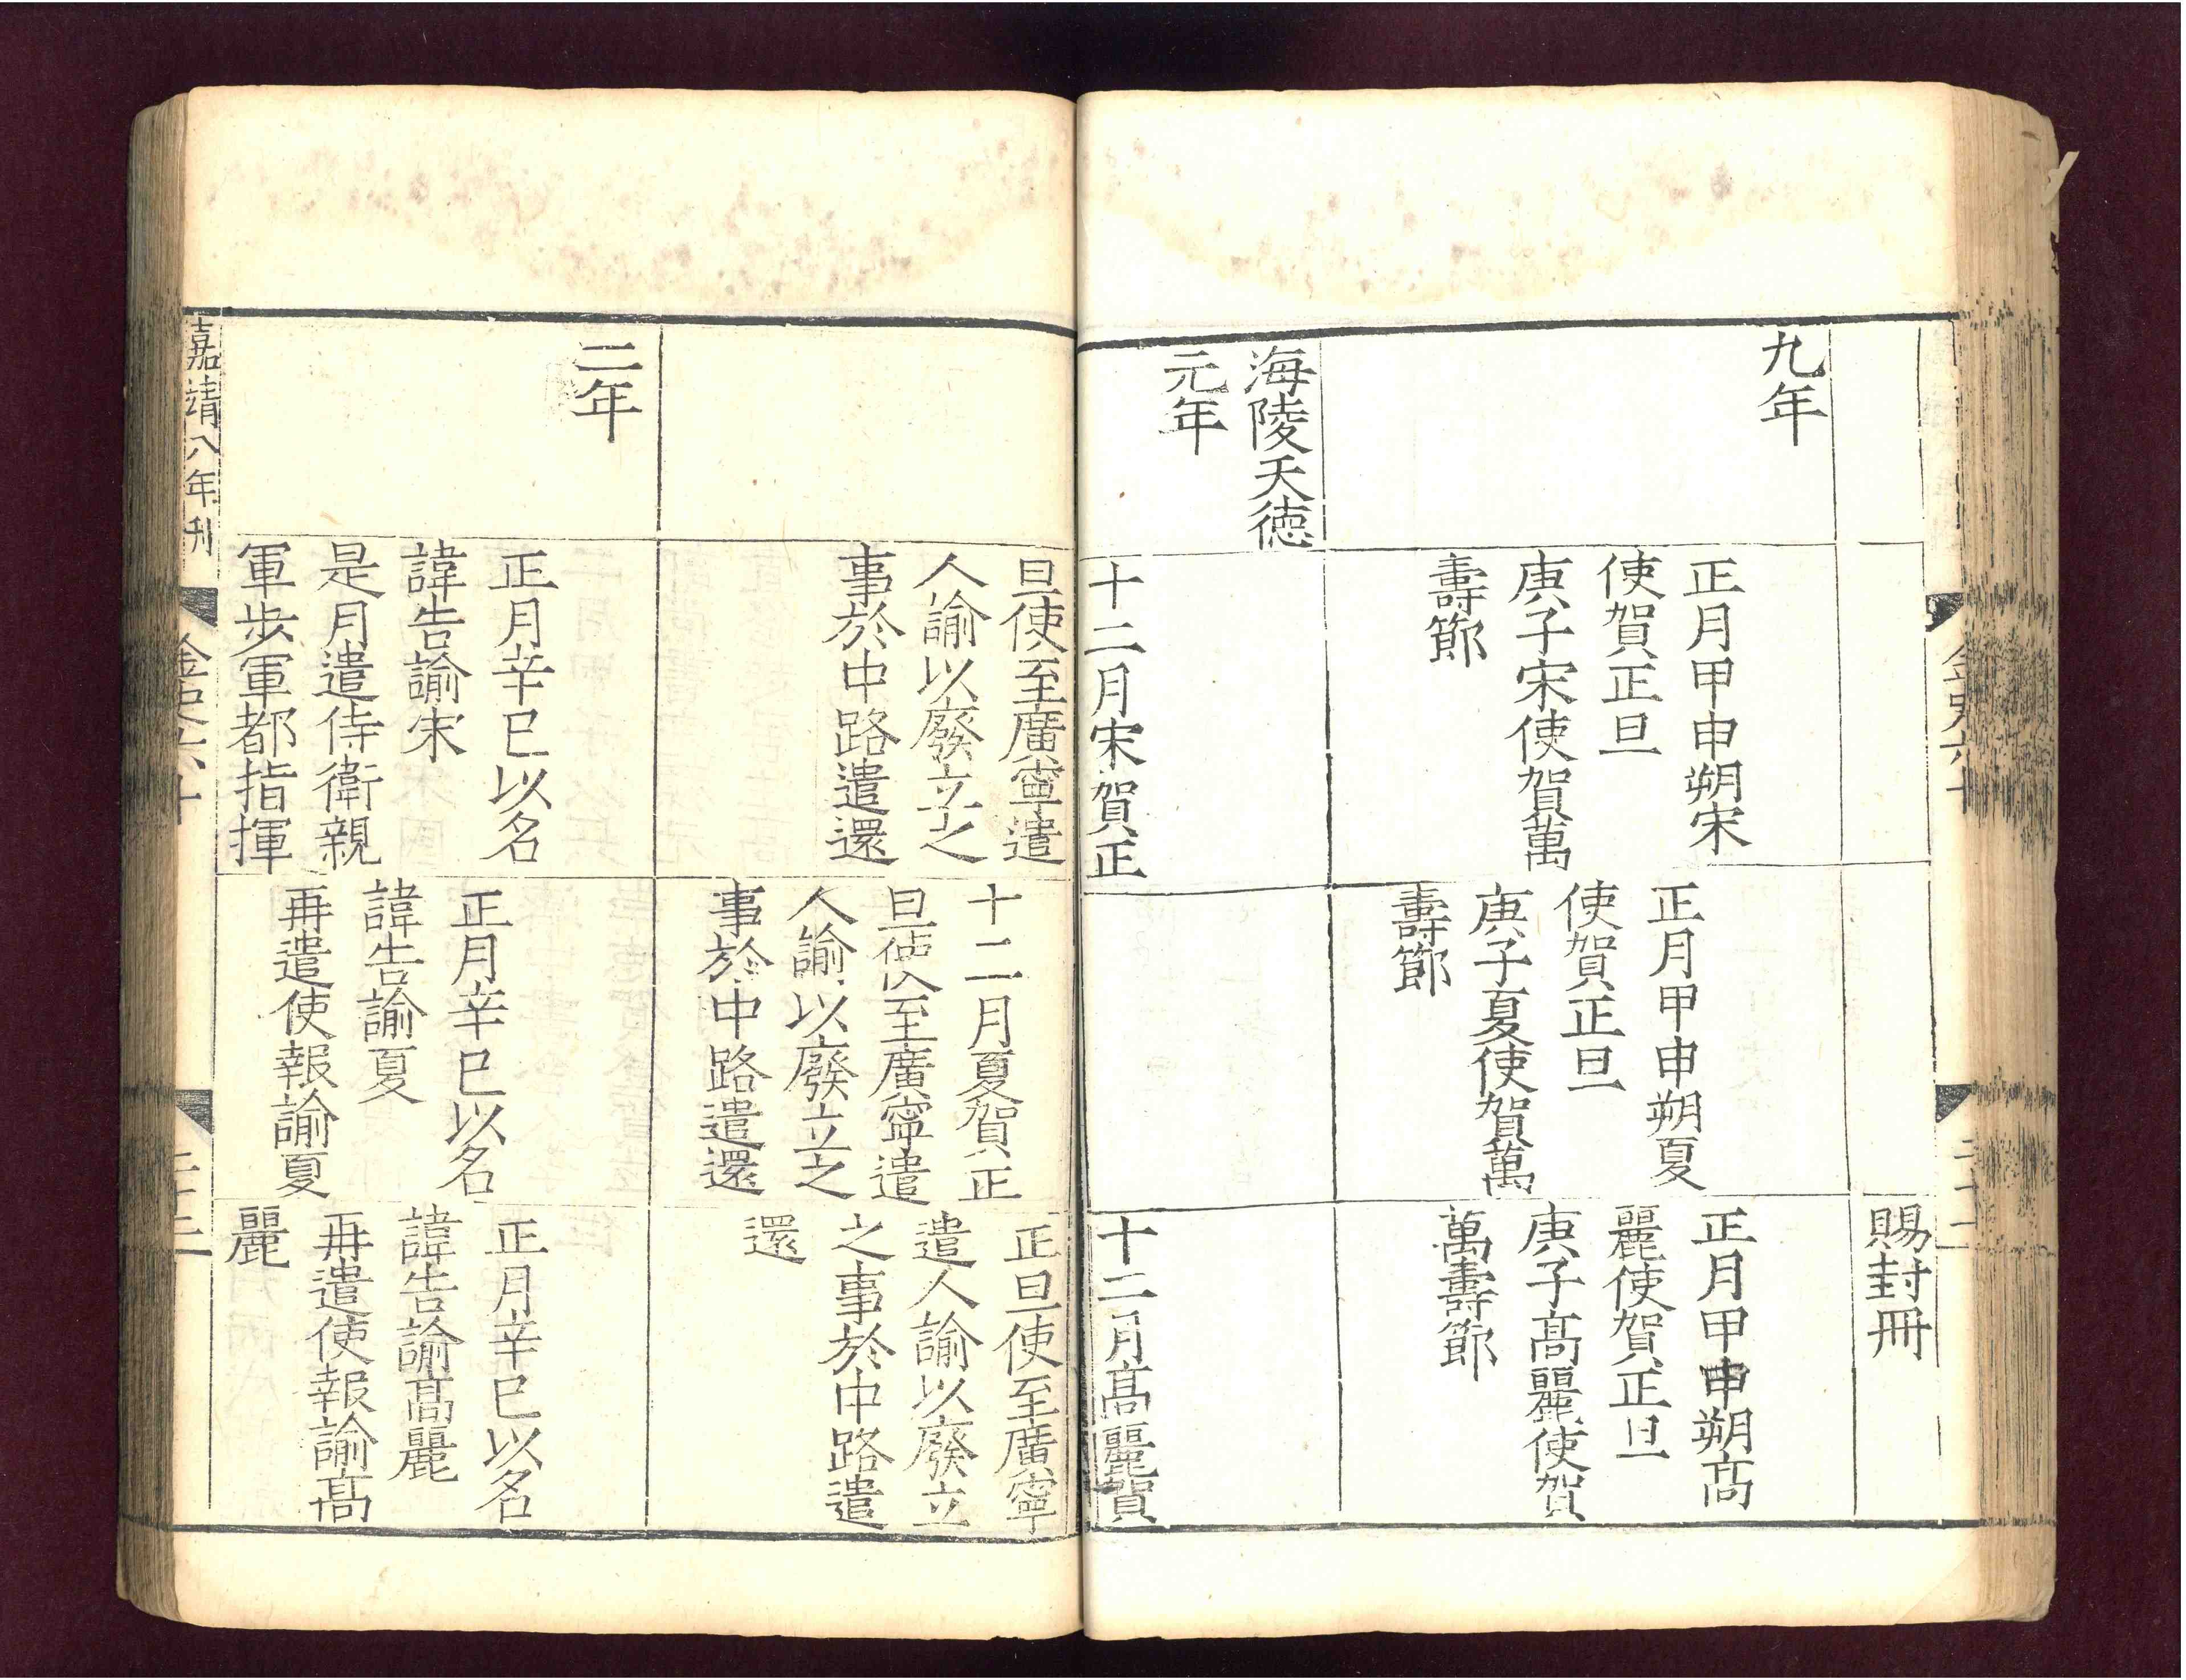 賜封冊
九年
正月甲申朔宋
使賀正旦
庚子宋使賀萬
壽節
正月甲申朔夏
使賀正旦
庚子夏使賀萬
壽節
正月甲申朔髙
麗使賀正旦
庚子髙麗使賀
萬壽節
海陵天德
元年
十二月宋賀正
旦使至廣寧遣
人諭以廢立之
事於中路遣還
十二月夏賀正
旦使至廣寧遣
人諭以廢立之
事於中路遣還
十二月髙麗賀
正旦使至廣寧
遣人諭以廢立
之事於中路遣
還
二年
正月辛巳以名
諱告諭宋
是月遣侍衛親
軍步軍都指揮
正月辛巳以名
諱告諭夏
再遣使報諭夏
正月辛巳以名
諱告諭髙麗
再遣使報諭髙
麗
嘉靖八年刋
金史六十
二十二